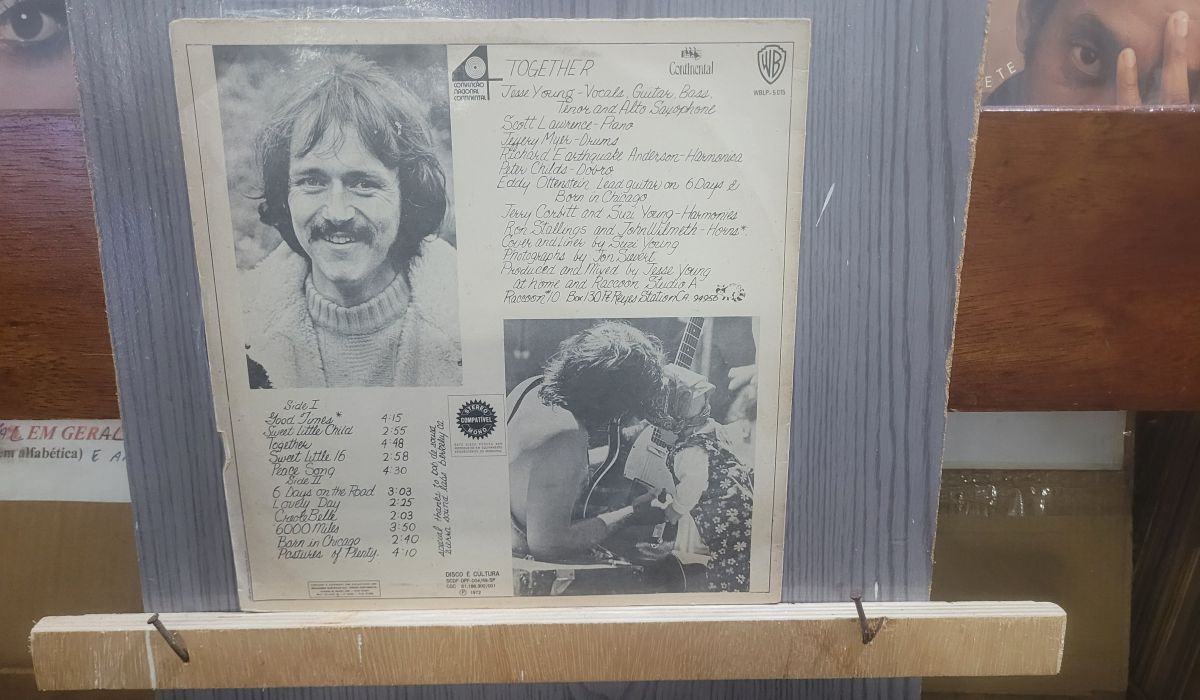 CONVENÇÃO
NACIONAL
CONTINENTAL
TOGETHER
Continental
WB
WBLP-5.015
Jesse Young - Vocals, Guitar, Bass,
Tenor and Alto Saxophone
Scott Lawrence - Piano
Jeffery Myer - Drums
Richard Earthquake Anderson - Harmonica
Peter Childs - Dobro
Eddy Ottenstein Lead guitar on 6 Days &
Born in Chicago
Jerry Corbitt and Suzi Young - Harmonies
Ron Stallings and John Wilmeth - Horns*.
Cover and Liner by Suzi Young
Photographs by Jon Sievert
Produced and Mixed by Jesse Young
at home and Raccoon Studio A
Raccoon #10 Box 130 Pt. Reyes Station CA. 94956
Side I
Good Times* 4:15
Sweet Little Child 2:55
Together 4:48
Sweet Little 16 2:58
Peace Song 4:30
Side II
6 Days on the Road 3:03
Lovely Day 2:25
Creole Belle 2:03
6000 Miles 3:50
Born in Chicago 2:40
Pastures of Plenty. 4:10
STEREO
COMPATÍVEL
MONO
special thanks to
sound labs Berkeley Ca
DISCO É CULTURA
1972
ETE
EM GERAL
em alfabética) E A